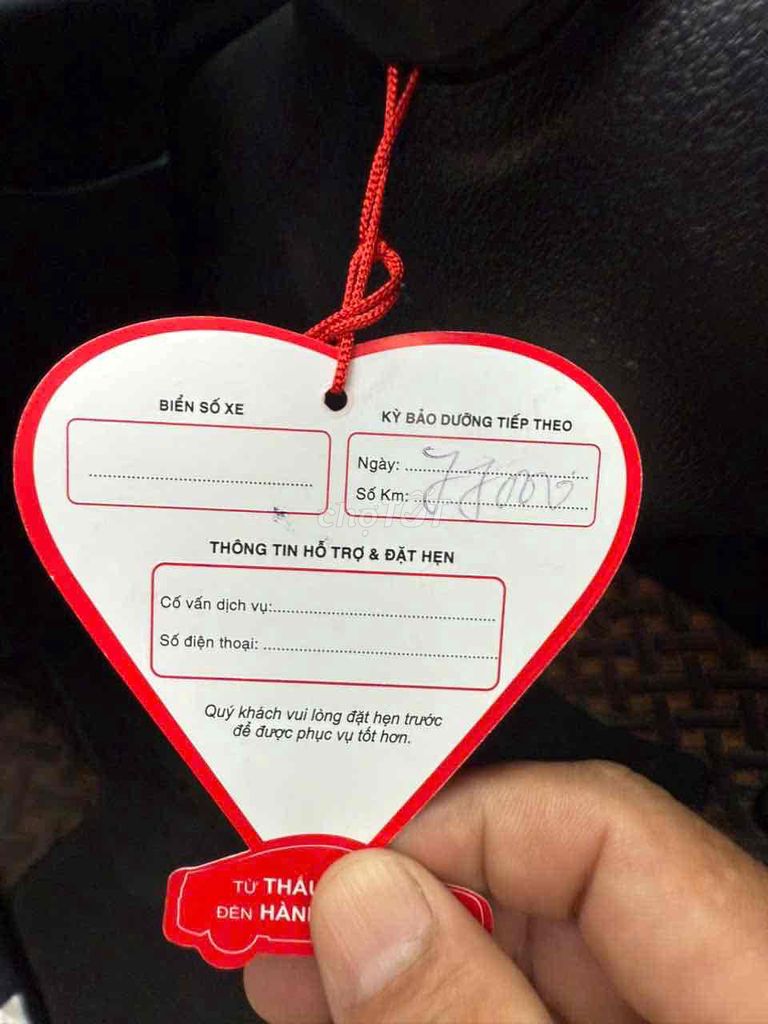 BIỂN SỐ XE
KỲ BẢO DƯỠNG TIẾP THEO
Ngày:
Số Km: 77000
chợTỐT
THÔNG TIN HỖ TRỢ & ĐẶT HẸN
Cố vấn dịch vụ:
Số điện thoại:
Quý khách vui lòng đặt hẹn trước
để được phục vụ tốt hơn.
TỪ THẤU
ĐẾN HÀNH